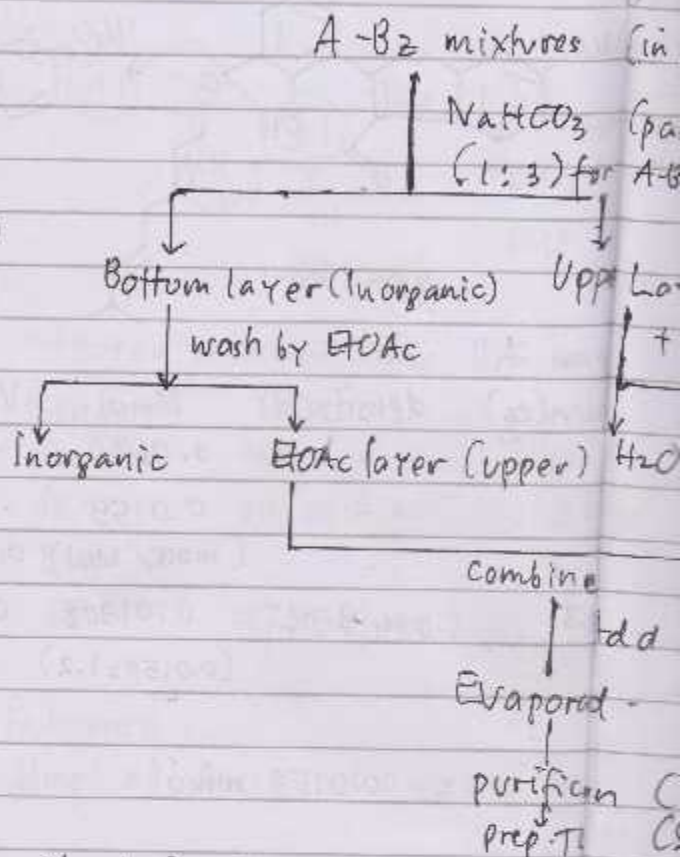 A-Bz mixtures (in
NaHCO3 (pa
(1:3) for A-B
Bottom layer (Inorganic) Upp La
wash by EtOAc +
Inorganic EtOAc layer (upper) H2O
Combine
dd
Evaporat
purifican C
prep.TL